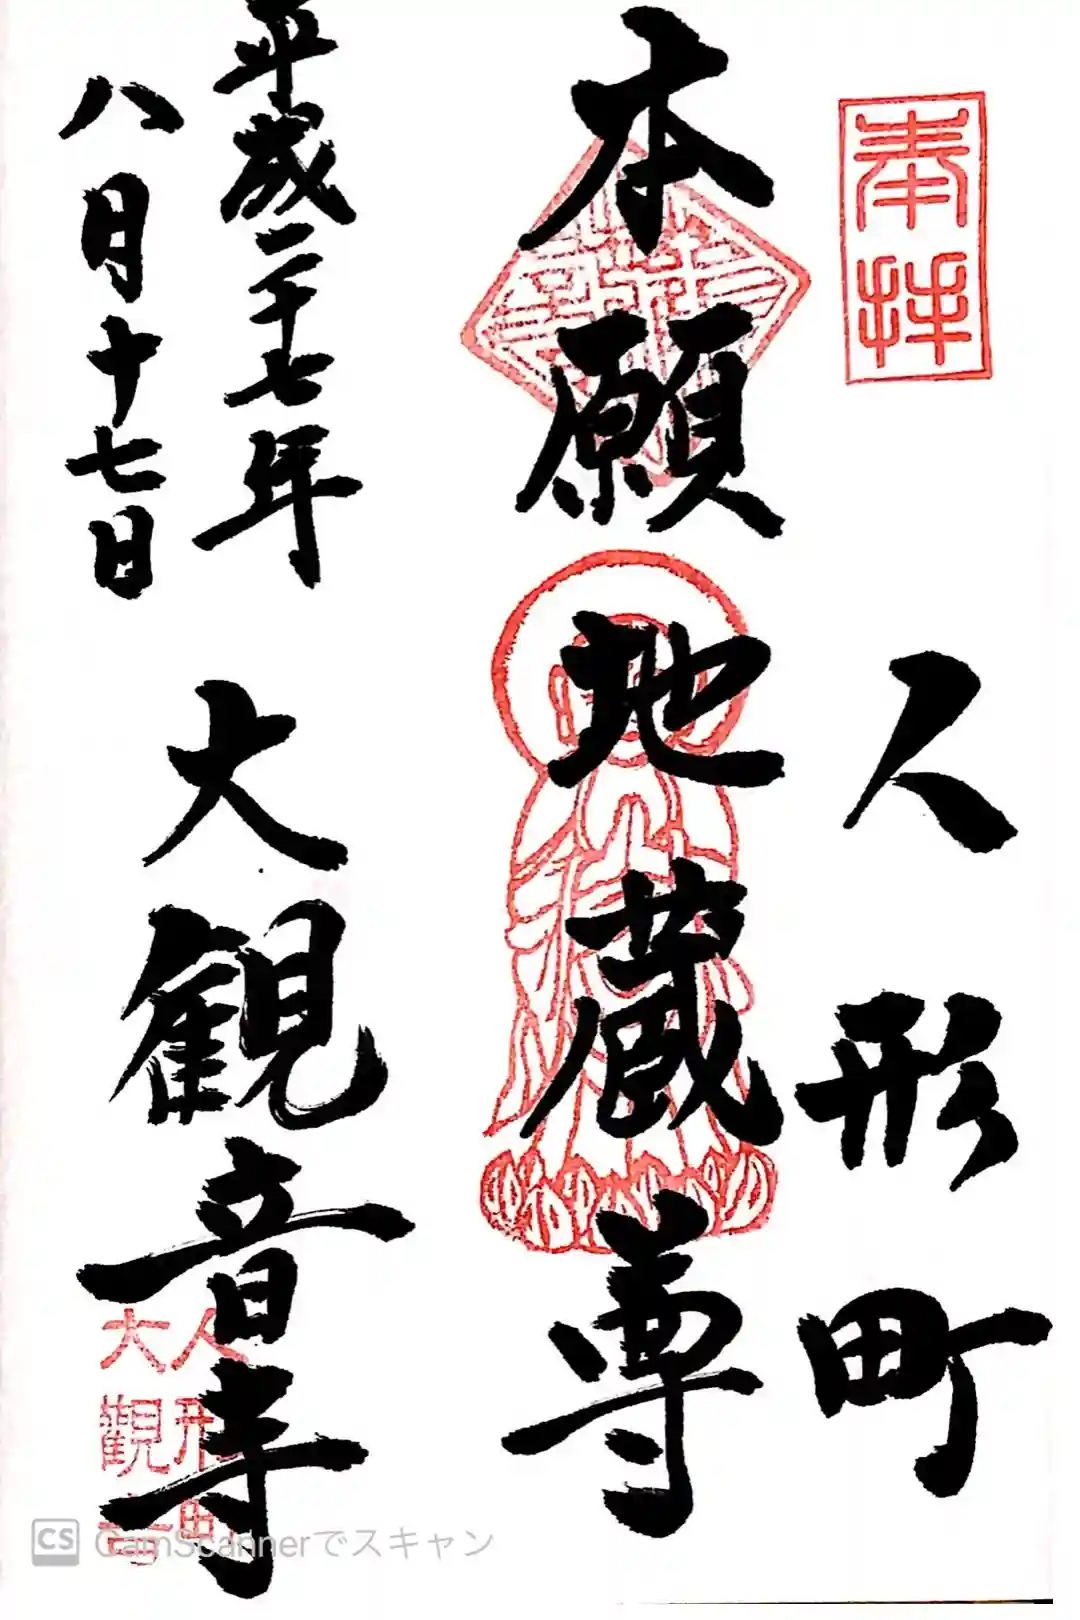 奉拝
人形町
本願地蔵尊
平成二十七年
八月十七日
大観音寺
人形町
大觀音寺
CS CamScannerでスキャン